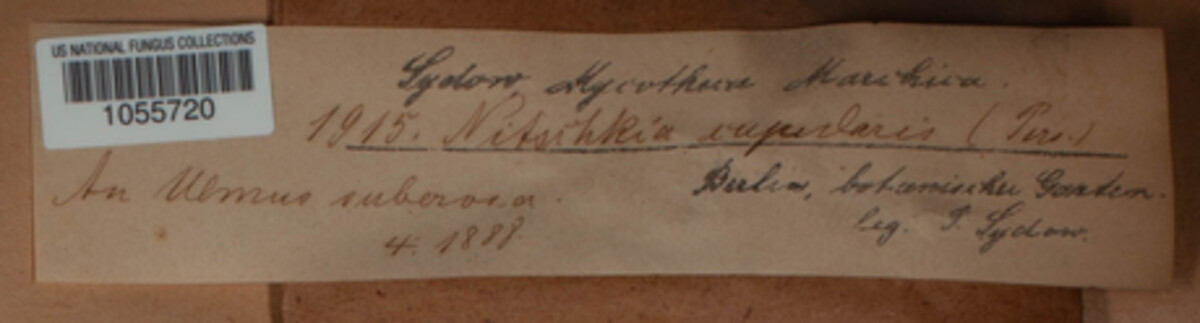 US NATIONAL FUNGUS COLLECTIONS
1055720
Sydow, Mycotheca Marchica.
1915. Nitschkia cupularis (Pers.)
An Ulmus suberosa.
4. 1888.
Berlin, botanischer Garten.
leg. P. Sydow.